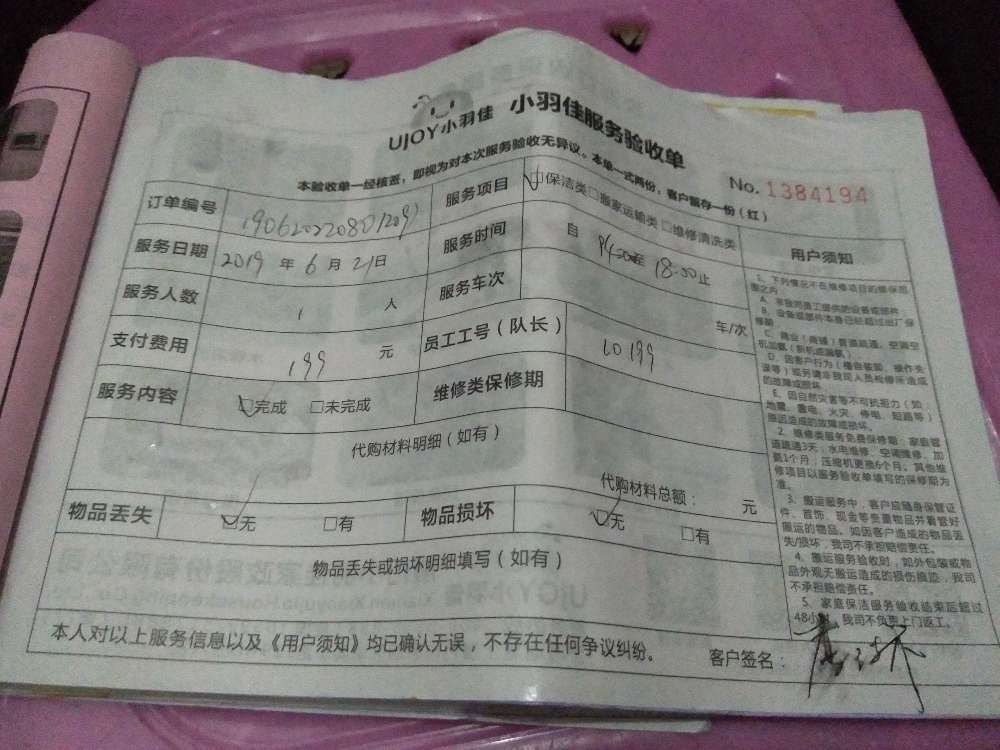 UJOY小羽佳 小羽佳服务验收单
本验收单一经核签，即视为对本次服务验收无异议。本单一式两份，客户留存一份（红）
No. 1384194
订单编号
服务项目 □保洁类□搬家运输类□维修清洗类
服务日期 2019 年 6 月 21日
服务时间 自 14:00至 18:00止
服务人数 1 人
服务车次 车/次
支付费用 199 元
员工工号（队长） 20199
服务内容 □完成 □未完成
维修类保修期
代购材料明细（如有）
代购材料总额： 元
物品丢失 □无 □有
物品损坏 □无 □有
物品丢失或损坏明细填写（如有）
本人对以上服务信息以及《用户须知》均已确认无误，不存在任何争议纠纷。
客户签名：
用户须知
1、下列情况不在维修项目的维保范围之内
A、非我司员工提供的设备或部件
B、设备或部件本身已经超过出厂保修期
D、因客户行为（擅自装卸、操作失误等）或另请非我司人员检修所造成的故障或损坏
E、因自然灾害等不可抗拒力（如：地震、雷电、火灾、停电、短路等）原因造成的故障或损坏。
2、维修类服务免费保修期：家庭管道疏通3天；水电维修、空调维修、加氨1个月；压缩机更换6个月。其他维修项目以服务验收单填写的保修期为准。
3、搬运服务中，客户应随身保管证件、首饰、现金等贵重物品并看管好搬运的物品。如因客户造成的物品丢失/损坏，我司不承担赔偿责任。
4、搬运服务验收时，如外包装或物品外观无搬运造成的损伤痕迹，我司不承担赔偿责任。
5、家庭保洁服务验收结束后超过48小时，我司不负责上门返工。